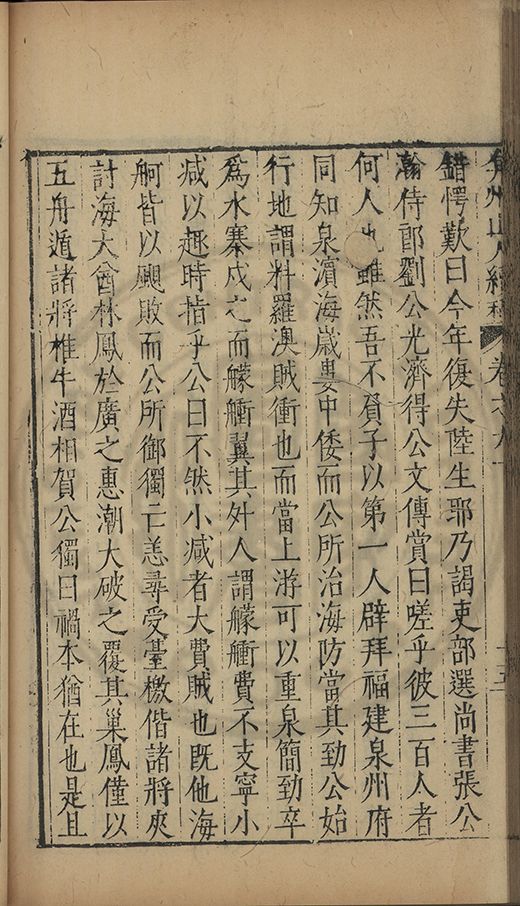 弇州山人續稿 卷之九十 十五
錯愕歎曰今年復失陸生耶乃謁吏部選尚書張公
瀚侍郎劉公光濟得公文傳賞曰嗟乎彼三百人者
何人也雖然吾不負子以第一人辟拜福建泉州府
同知泉濵海歲婁中倭而公所治海防當其劲公始
行地謂料羅澳賊衝也而當上游可以重泉簡劲卒
爲水寨戍之而艨艟翼其外人謂艨艟費不支寧小
減以趣時指乎公曰不然小減者大費賊也既他海
舸皆以颶敗而公所御獨亡恙尋受臺檄偕諸將夾
討海大酋林鳳於廣之惠潮大破之覆其巢鳳僅以
五舟遁諸將椎牛酒相賀公獨曰禍本猶在也是且